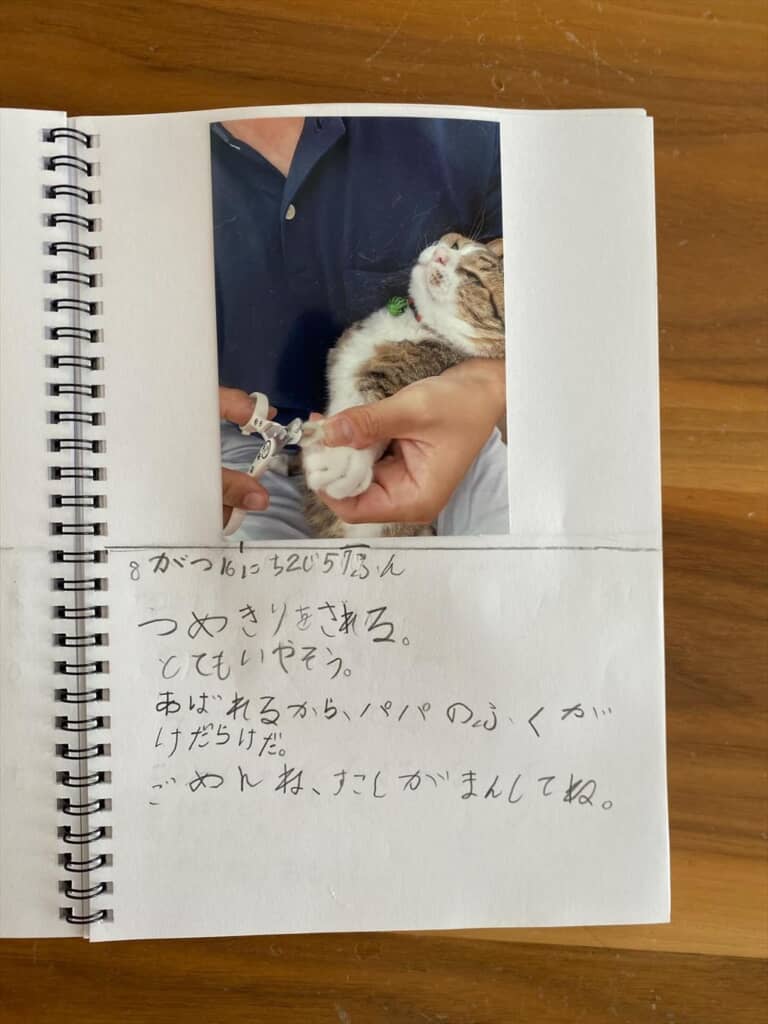 8がつ16にち2じ57ふん
つめきりをされる。
とてもいやそう。
あばれるから、パパのふくが
けだらけだ。
ごめんね、すこしがまんしてね。